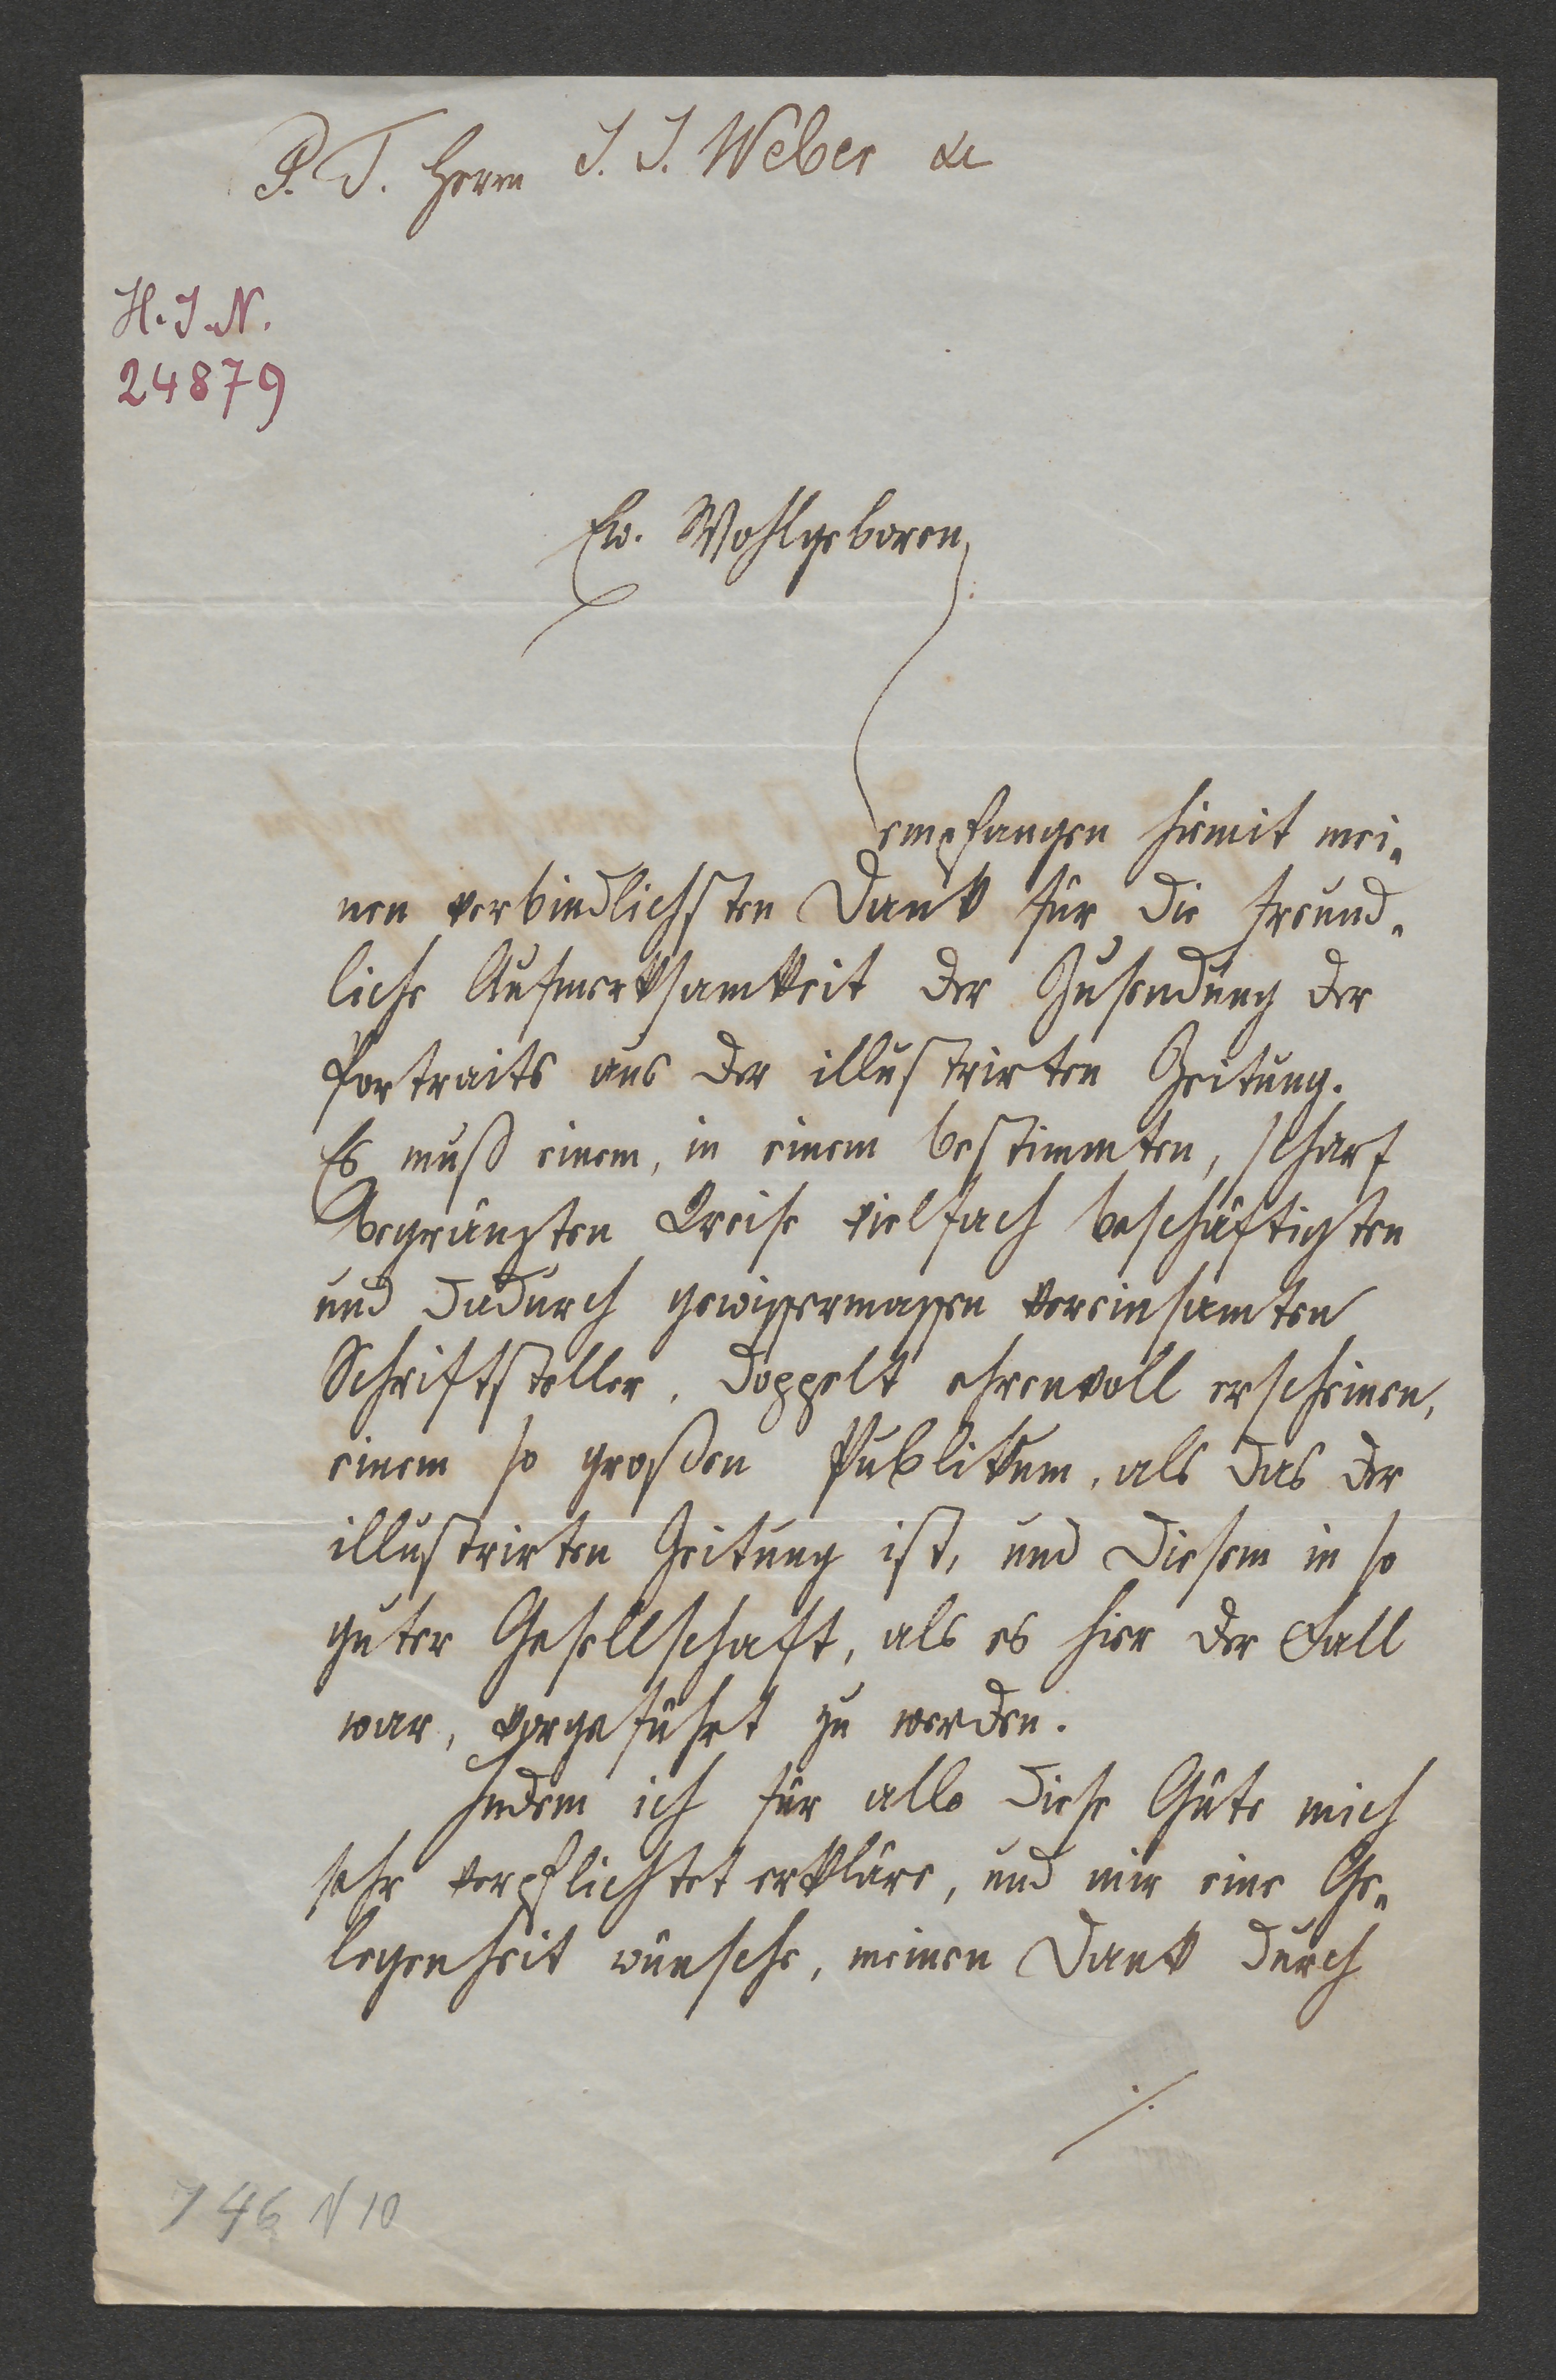 P. T. Herrn J. J. Weber &c
H. I. N.
24879
Ew. Wohlgeboren
empfangen hiemit mei-
nen verbindlichsten Dank für die freund-
liche Aufmerksamkeit der Zusendung der
Portraits aus der illustrirten Zeitung.
Es muß einem, in einem bestimmten, scharf
begränzten Kreise vielfach beschäftigten
und dadurch gewissermassen vereinsamten
Schriftsteller, doppelt ehrenvoll erscheinen,
einem so großen Publikum, als das der
illustrirten Zeitung ist, und diesem in so
guter Gesellschaft, als es hier der Fall
war, vorgeführt zu werden.
Indem ich für alle diese Güte mich
sehr verpflichtet erkläre, und mir eine Ge-
legenheit wünsche, meinen Dank durch
./.
J 46 N 10